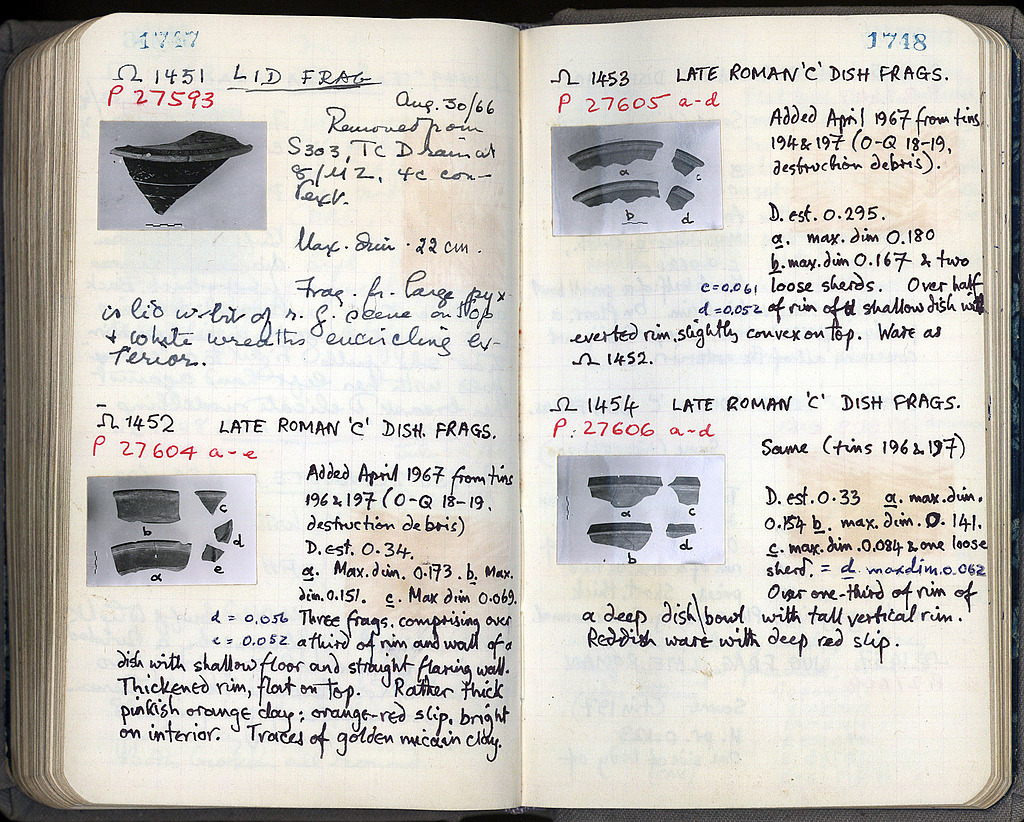 1747
Ω 1451 LID FRAG
P 27593
Aug. 30/66
Removed from
S303, TC Drain at
8/ΜΖ, 4c con-
text.
Max. dim. 22 cm.
Frag. fr. large pyx-
is lid w. bit of r. g. scene on top
+ white wreaths encircling ex-
terior.
Ω 1452 LATE ROMAN 'C' DISH. FRAGS.
P 27604 a-e
b c d a e
Added April 1967 from tins
196 & 197 (O-Q 18-19,
destruction debris)
D. est. 0.34.
a. Max. dim. 0.173. b. Max.
dim. 0.151. c. Max dim 0.069.
d = 0.056 Three frags. comprising over
e = 0.052 a third of rim and wall of a
dish with shallow floor and straight flaring wall.
Thickened rim, flat on top. Rather thick
pinkish orange clay; orange-red slip, bright
on interior. Traces of golden mica in clay.
1748
Ω 1453 LATE ROMAN 'C' DISH FRAGS.
P 27605 a-d
a c b d
Added April 1967 from tins
194 & 197 (O-Q 18-19,
destruction debris).
D. est. 0.295.
a. max. dim 0.180
b. max. dim 0.167 & two
c = 0.061 loose sherds. Over half
d = 0.052 of rim of shallow dish with
everted rim, slightly convex on top. Ware as
Ω 1452.
Ω 1454 LATE ROMAN 'C' DISH FRAGS.
P. 27606 a-d
a c b d
Same (tins 196 & 197)
D. est. 0.33 a. max. dim.
0.154 b. max. dim. 0.141.
c. max. dim. 0.084 & one loose
sherd. = d. max dim. 0.062
Over one-third of rim of
a deep dish\bowl with tall vertical rim.
Reddish ware with deep red slip.